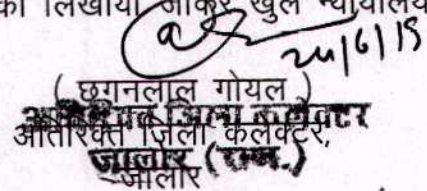 को लिखाया जाकर खुले न्यायालय
24/6/15
( छगनलाल गोयल )
अतिरिक्त जिला कलेक्टर
अतिरिक्त जिला कलेक्टर,
जालोर (राज.)
जालोर